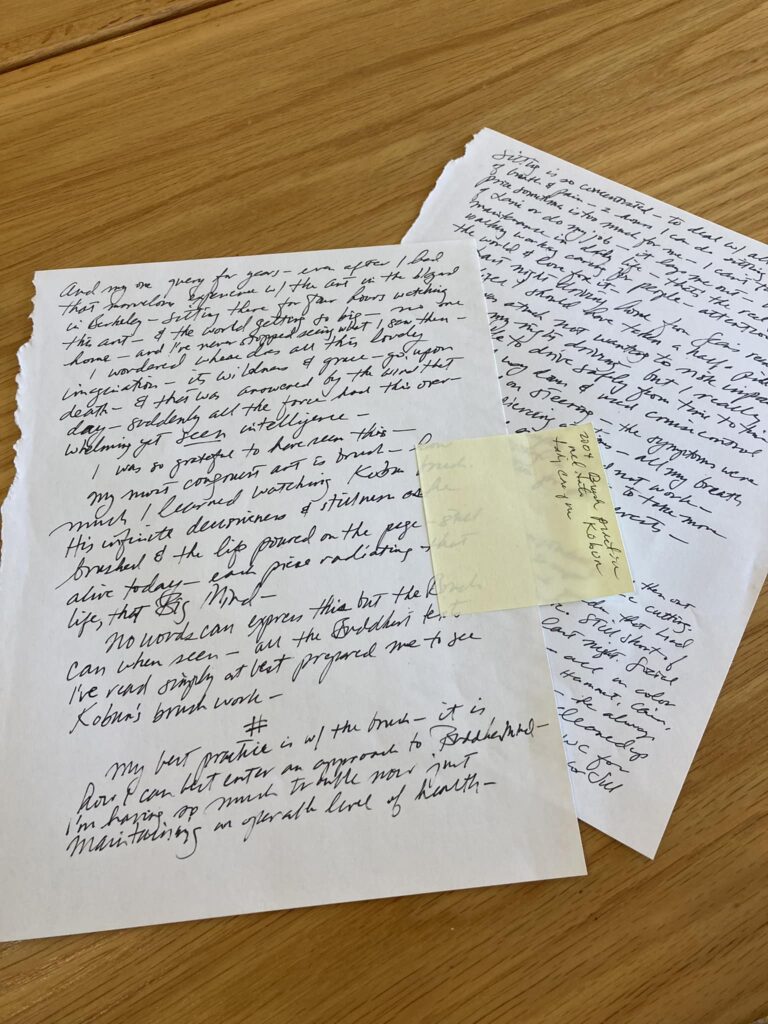 And my one query for years – even after I had
that marvelous experience w/ the ant in the blizzard
in Berkeley – sitting there for four hours watching
this ant – & the world getting so big – no one
home – and I've never stopped seeing what I saw then –
I wondered where does all this lovely
imagination – its wildness & grace – go upon
death – & this was answered by the wind that
day – suddenly all the force had this over-
whelming yet seen intelligence –
I was so grateful to have seen this –
My most congruent art is brush – how
much I learned watching Kobun brush
His infinite decisiveness & stillness as he
brushed & the life poured on the page – still
alive today – each piece radiating that
life, that Big Mind –
No words can express this but the Brush
can when seen – all the Buddhist text
I've read simply at best prepared me to see
Kobun's brush work –
#
My best practice is w/ the brush – it is
how I can best enter an approach to Buddha Mind –
I'm having so much trouble now just
maintaining an operable level of health –
2004 Brush practice
Kobun
Sitting is so concentrated – to deal w/ all
of breath & pain – 2 hours of sitting
price sometime is too much for me – I can't
or do my job – it lays me out –
maintenance in daily life – that's the real
walking working caring for people – attention
the world & love for it –
last night driving home from
I should have taken a half
attack not wanting to risk
my night driving but I really
to drive safely from time to time
my down & used cruise control
on steering – the symptoms were
– all my breath
did not work –
to take more
then out
cutting
that had
still short of
last night.
– all in color
Hammit,
– he always
cleaned up
WC for